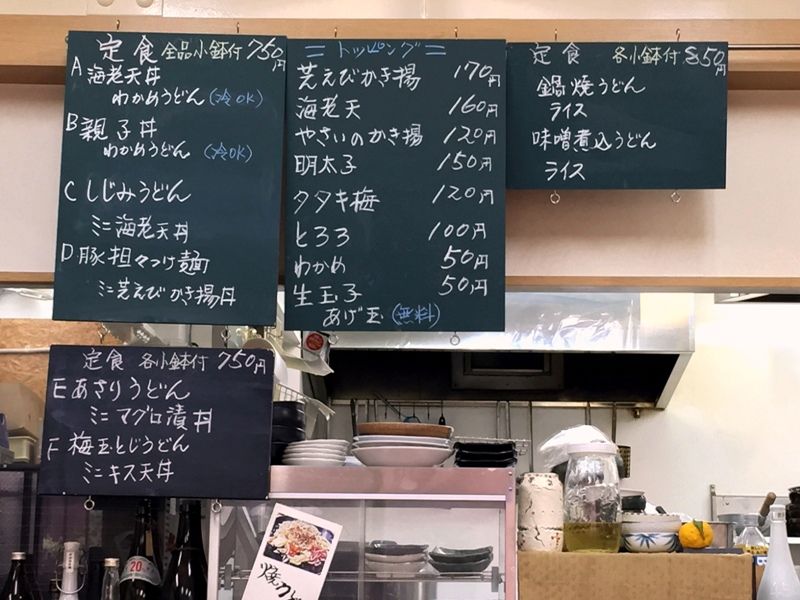 定食 全品小鉢付 750円
A 海老天丼
わかめうどん (冷OK)
B 親子丼
わかめうどん (冷OK)
C しじみうどん
ミニ海老天丼
D 豚担々つけ麺
ミニ芝えびかき揚丼
= トッピング =
芝えびかき揚 170円
海老天 160円
やさいのかき揚 120円
明太子 150円
タタキ梅 120円
とろろ 100円
わかめ 50円
生玉子 50円
あげ玉 (無料)
定食 各小鉢付 850円
鍋焼うどん
ライス
味噌煮込うどん
ライス
定食 各小鉢付 750円
E あさりうどん
ミニマグロ漬丼
F 梅玉とじうどん
ミニキス天丼
20